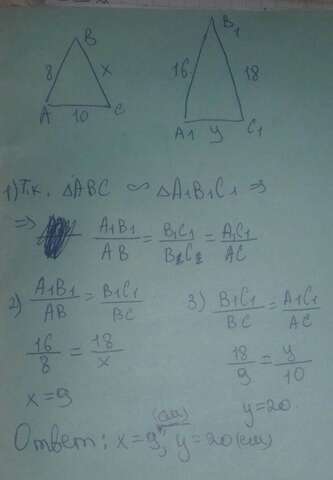 B
8 x
A 10 C
B₁
16 18
A₁ y C₁
1) Т.к. ΔABC ∽ ΔA₁B₁C₁ ⇒
⇒ A₁B₁/AB = B₁C₁/B₂C₂ = A₁C₁/AC
2) A₁B₁/AB = B₁C₁/BC
16/8 = 18/x
x = 9
3) B₁C₁/BC = A₁C₁/AC
18/9 = y/10
y = 20.
Ответ: x = 9 (см), y = 20 (см)